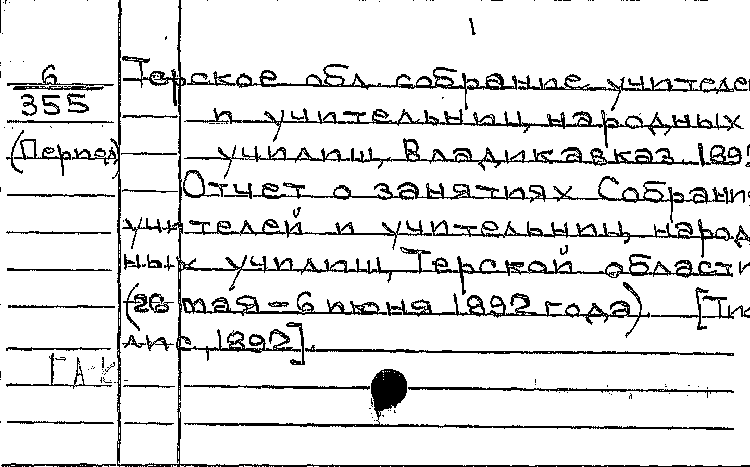 1
6
355
(Период)
Терское обл. собрание учителе
и учительниц народных
училищ, Владикавказ 189
Отчет о занятиях Собрания
учителей и учительниц народ
ных училищ, Терской области
(26 мая – 6 июня 1892 года). [Ти
лис, 1892].
ГА-К